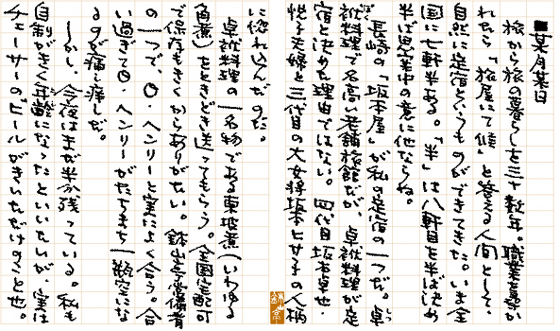 ■某月某日
旅から旅の暮らしを三十数年。職業を聞か
れたら「旅屋にて候」と答える人間として、
自然に定宿というものができてきた。いま全
国に七軒半ある。「半」は八軒目を半ば決め
半ば思案中の意に他ならね。
長崎の「坂本屋」が私の定宿の一つだ。卓
袱料理で名高い老舗旅館だが、卓袱料理が定
宿と決めた理由ではない。四代目坂本卓也・
悦子夫婦と三代目の大女将坂本ヒサ子の人柄
に惚れ込んだのだ。
卓袱料理の一名物である東坡煮(いわゆる
角煮)をときどき送ってもらう。全国宅配可
で保存もきくからありがたい。鉢山亭常備肴
の一つで、O・ヘンリーと実によく合う。合
い過ぎてO・ヘンリーがたちまち一瓶空にな
るのが痛し痒しだ。
しかし、今夜はまだ半分残っている。私も
自制がきく年齢になったといいたいが、実は
チェーサーのビールがきいただけのこと也。